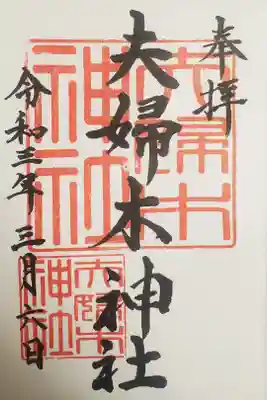 奉拝
夫婦木神社
令和三年 三月六日
夫婦木
神社
夫婦木
神社